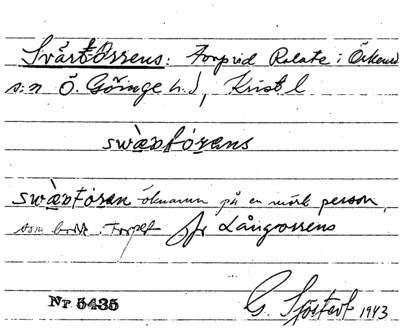 Svårtossens: torp vid Rålate i Örkened
s:n Ö. Göinge h.d, Krist l
swàʀtórens
swàʀtóren öknamn på en mörk person,
som bott i torpet jfr Långossens
Nr 5435
G. Sjöstedt 1943